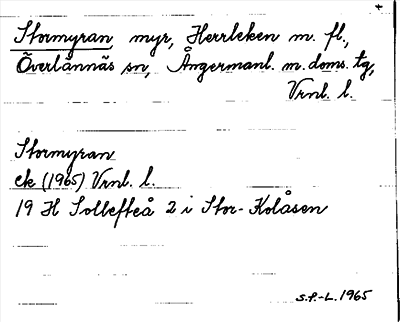 Stormyran myr, Herrleken m. fl.,
Överlännäs sn, Ångermanl. m. doms. tg,
Vrnl. l.
Stormyran
ek (1965) Vrnl. l.
19 H Sollefteå 2 i Stor-Kolåsen
S.P.-L. 1965